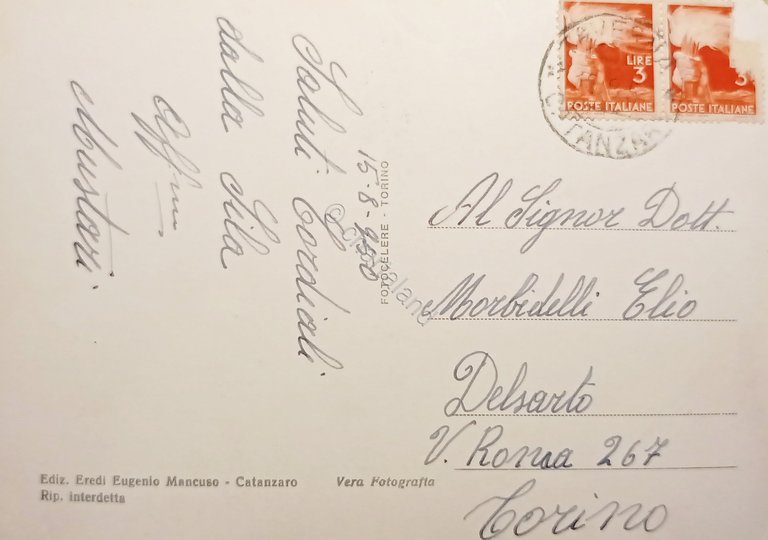 15-8-950
Saluti Cordiali
dalla Sila
Aff.mi
Mustari
FOTOCELERE - TORINO
LIRE
3
POSTE ITALIANE
3
POSTE ITALIANE
CATANZARO
Al Signor Dott.
Morbidelli Elio
Delsarto
V. Roma 267
Torino
Ediz. Eredi Eugenio Mancuso - Catanzaro
Rip. interdetta
Vera Fotografia